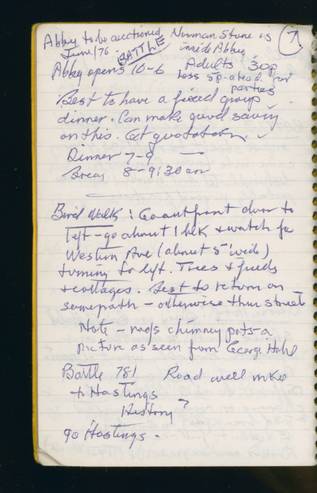 Abbey to be auctioned Norman Stone is
June/76 BATTLE inside Abbey
7
Abbey opens 10-6 Adults 30p
less sp. a head for
parties
Best to have a fixed group
dinner. Can make good saving
on this. Get quotation ✓
Dinner 7-9 —
Break 8-9:30 am
Bird Walk: Go out front door to
left - go about 1 blk & watch for
Western Ave (about 5' wide)
turning to left. Trees & fields
& cottages. Best to return on
same path - otherwise thru streets
Note - roofs chimney pots - a
picture as seen from George Hotel
Battle 781 Road well mked
to Hastings
History?
90 Hastings.